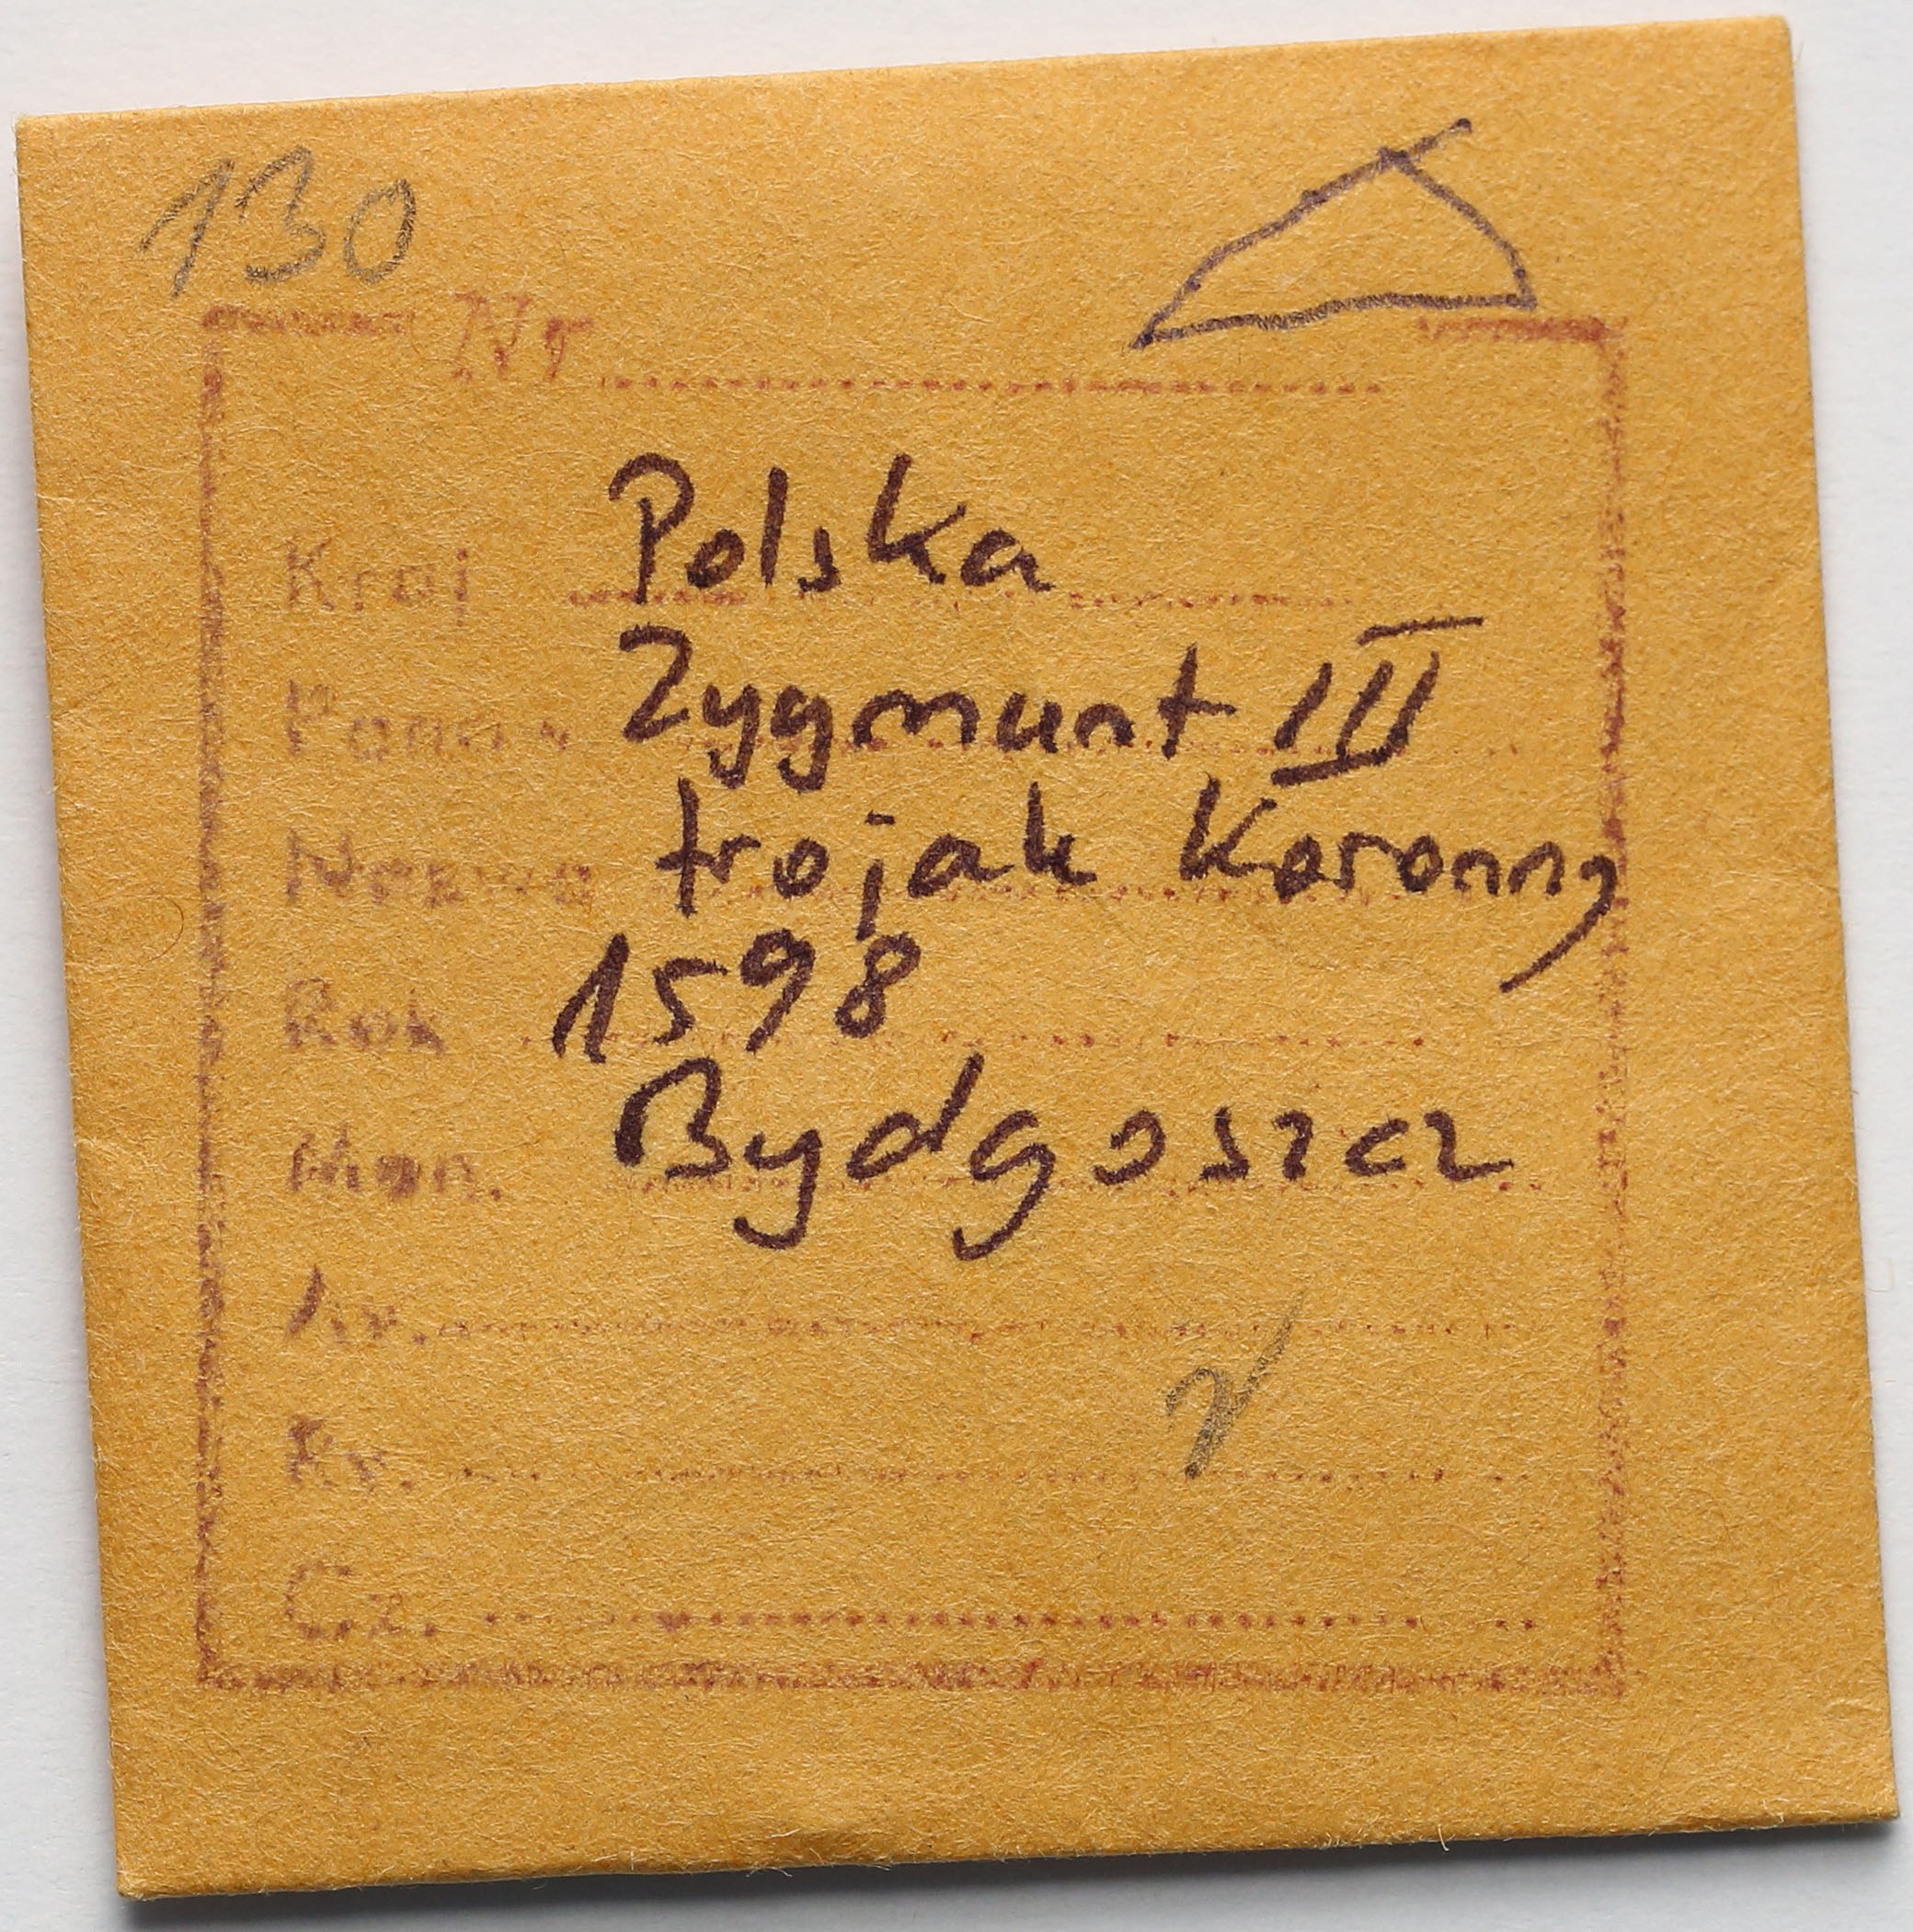 130
Nr
Kraj Polska
Panow. Zygmunt III
Nazwa trojak Koronny
Rok 1598
Men. Bydgoszcz
Av.
Rv.